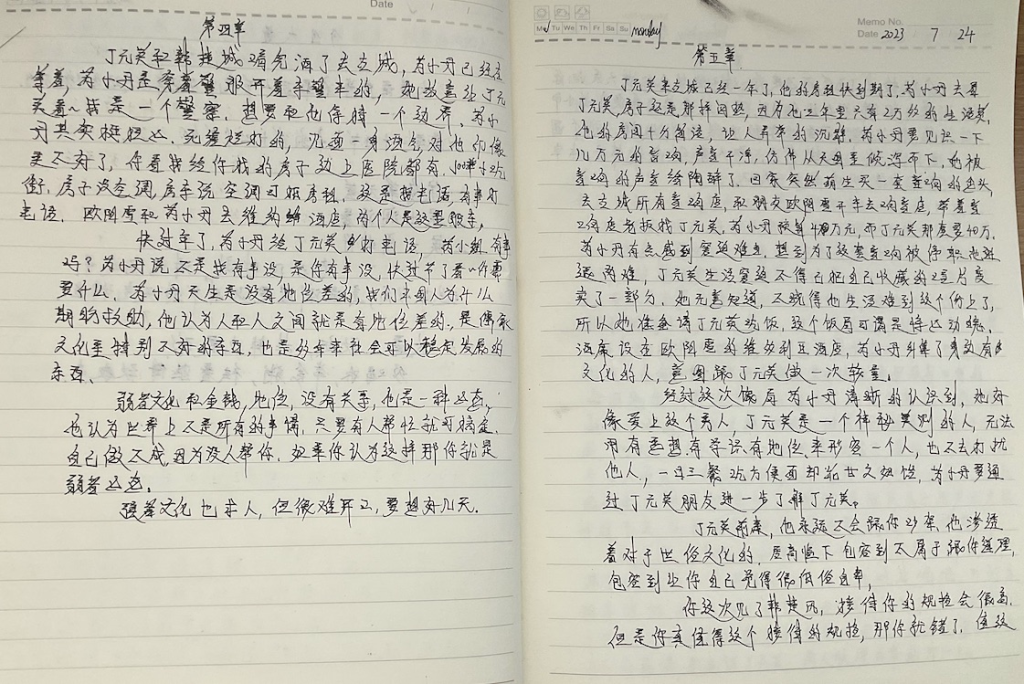 Date
第四章
丁元英和韩楚城喝完酒了去古城，芮小丹已经在
等着，芮小丹是穿着警服开着车警车的，她故意让丁元
英看~我是一个警察，想要和他保持一个边界，芮小
丹其实挺 的，见丁元英一身酒气对他印象
更不好了，你看我给你找的房子边上医院都有，100米小吃
街，房子没空调，房东说空调可抵房租，这是电话，有事打
电话。欧阳雪和芮小丹去维纳斯酒店，两个人是这里股东，
快过年了，芮小丹给丁元英打电话，芮小姐有事
吗？芮小丹说不是我有事没是你有事没，快过节了看你需
要什么，芮小丹天生是没有地位差的，我们中国人为什么
期盼救助，他认为人和人之间就是有地位差的，是传统
文化里特别不好的东西，也是好多年来社会可以稳定发展的
东西。
弱者文化和金钱，地位，没有关系，也是一种心态，
也认为世界上不是所有的事情，只要有人帮忙就可搞定，
自己做不成，因为没人帮你，如果你认为这样那你就是
弱者心态。
强者文化也求人，但很难开口，要想好几天。
Memo No.
Mo Tu We Th Fr Sa Su monday
Date 2023 7 24
第五章
丁元英来古城已经一年了，他的房租快到期了，芮小丹去看
丁元英，房子还是那样闷热，因为他这年里只有2万多的生活费，
他的房间十分简洁，让人看来的沉静，芮小丹要见识一下
几万元的音响，声音干净，仿佛从天国里倾泻而下，她被
音响的声音给陶醉了，回家突然萌生买一套音响的念头，
去古城所有音响店，和朋友欧阳雪开车去响音店，带着音
响店老板找丁元英，芮小丹预算4万元，而丁元英那套要40万，
芮小丹有点感到窘迫难立，想到为了这套音响被停职而进
退两难，丁元英生活窘迫不得已把自己收藏的正片变
卖了一部分，她无意知道，不晓得他生活难到这个份上了，
所以她准备请丁元英吃饭，这个饭局可谓是惊心动魄，
酒席设在欧阳雪的维纳利亚酒店，芮小丹纠集了身边有
文化的人，意图跟丁元英做一次较量。
经过这次饭局芮小丹清晰的认识到，她好
像爱上这个男人，丁元英是一个神秘类别的人，无法
用有思想有学识有地位来形容一个人，也不去打扰
他人，一日三餐吃方便面却非世之奴仆，芮小丹要通
过丁元英朋友进一步了解丁元英。
丁元英前妻，他永远不会跟你吵架，他渗透
着对于世俗文化的，居高临下包容到不屑于跟你讲理，
包容到让你自己觉得很低俗自卑，
你这次见了韩楚风，接待你的规格会很高，
但是你真值得这个接待的规格，那你就错了，但这